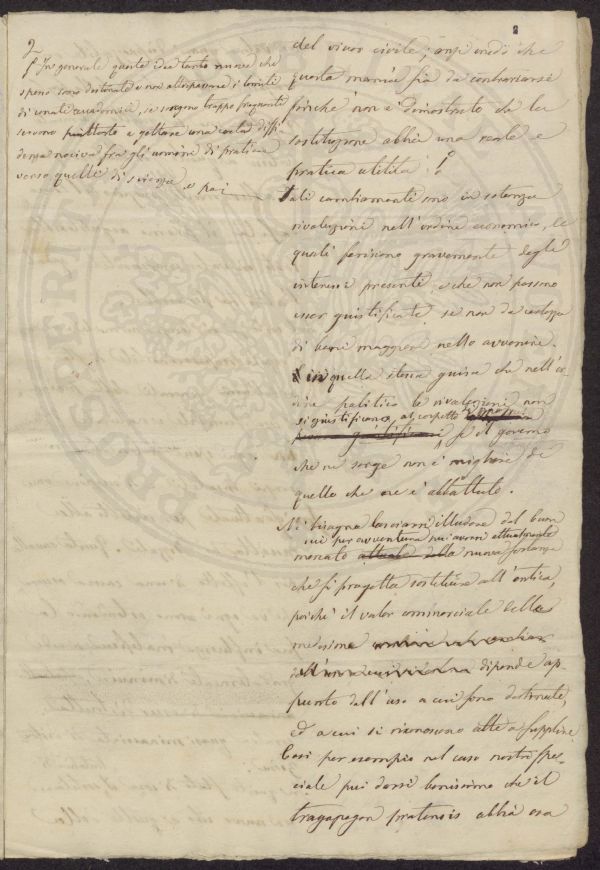 2
2
f In generale queste idee tanto nuove che
spesso sono destinate a non oltrepassare i limiti
di conati accademici, se sieno troppo frequenti
servono piuttosto a gettare una certa diffi-
denza nociva fra gli uomini di pratica
verso quelli di scienza e poi
del viver civile; anzi credo che
questa mania sia da contrariarsi
finché non è dimostrato che la
sostituzione abbia una reale e
pratica utilità !
Tali cambiamenti sono in sostanza
rivoluzioni nell'ordine economico, le
quali feriscono gravemente degli
interessi presenti, e che non possono
esser giustificate se non da certezza
di beni maggiori nello avvenire.
in quella stessa guisa che nell'or-
dine politico le rivoluzioni non
si giustificano, al cospetto
giustificarsi, se il governo
che ne sorge non è migliore di
quello che ne è abbattuto.
bisogna lasciarsi illudere dal buon
per avventura attualmente
mercato attuale della nuova sostanza
che si progetta sostituire all'antica,
poiché il valor commerciale della
medesima
dipende ap-
punto dall'uso a cui sono destinate,
ed a cui si riconoscono atte a supplire
Così per esempio nel caso nostro spe-
ciale può darsi benissimo che il
tragopogon pratensis abbia ora